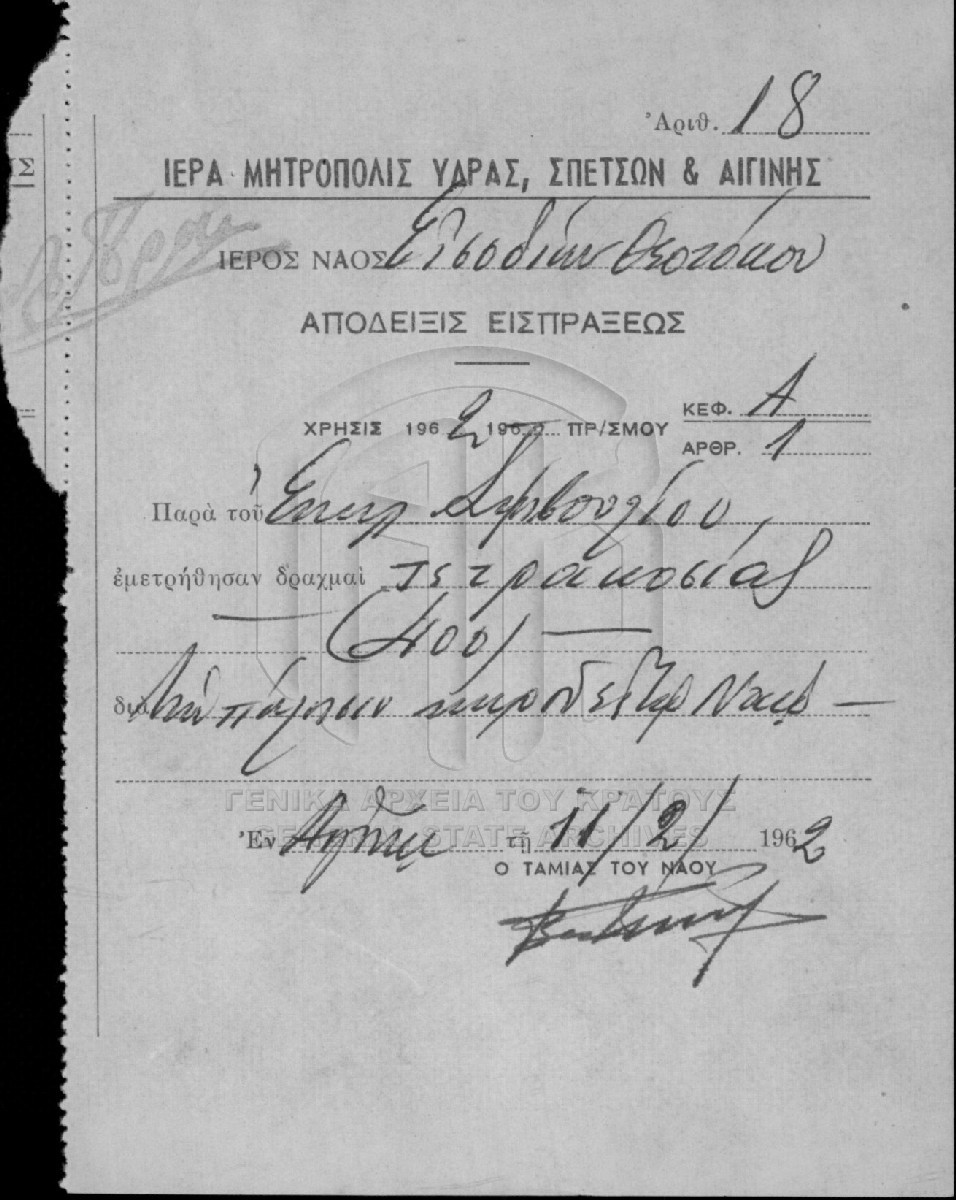 Ἀριθ. 18
ΙΕΡΑ ΜΗΤΡΟΠΟΛΙΣ ΥΔΡΑΣ, ΣΠΕΤΣΩΝ & ΑΙΓΙΝΗΣ
ΙΕΡΟΣ ΝΑΟΣ Εἰσοδίων Θεοτόκου
ΑΠΟΔΕΙΞΙΣ ΕΙΣΠΡΑΞΕΩΣ
ΚΕΦ. Α
ΧΡΗΣΙΣ 1962 196 ΠΡ/ΣΜΟΥ
ΑΡΘΡ. 1
Παρὰ τοῦ Ἐκκλ Συμβουλίου
ἐμετρήθησαν δραχμαὶ τετρακοσίας
(400)
διὰ
ΓΕΝΙΚΑ ΑΡΧΕΙΑ ΤΟΥ ΚΡΑΤΟΥΣ
Ἐν τῇ 11/2/ 1962
GENERAL STATE ARCHIVES
Ο ΤΑΜΙΑΣ ΤΟΥ ΝΑΟΥ